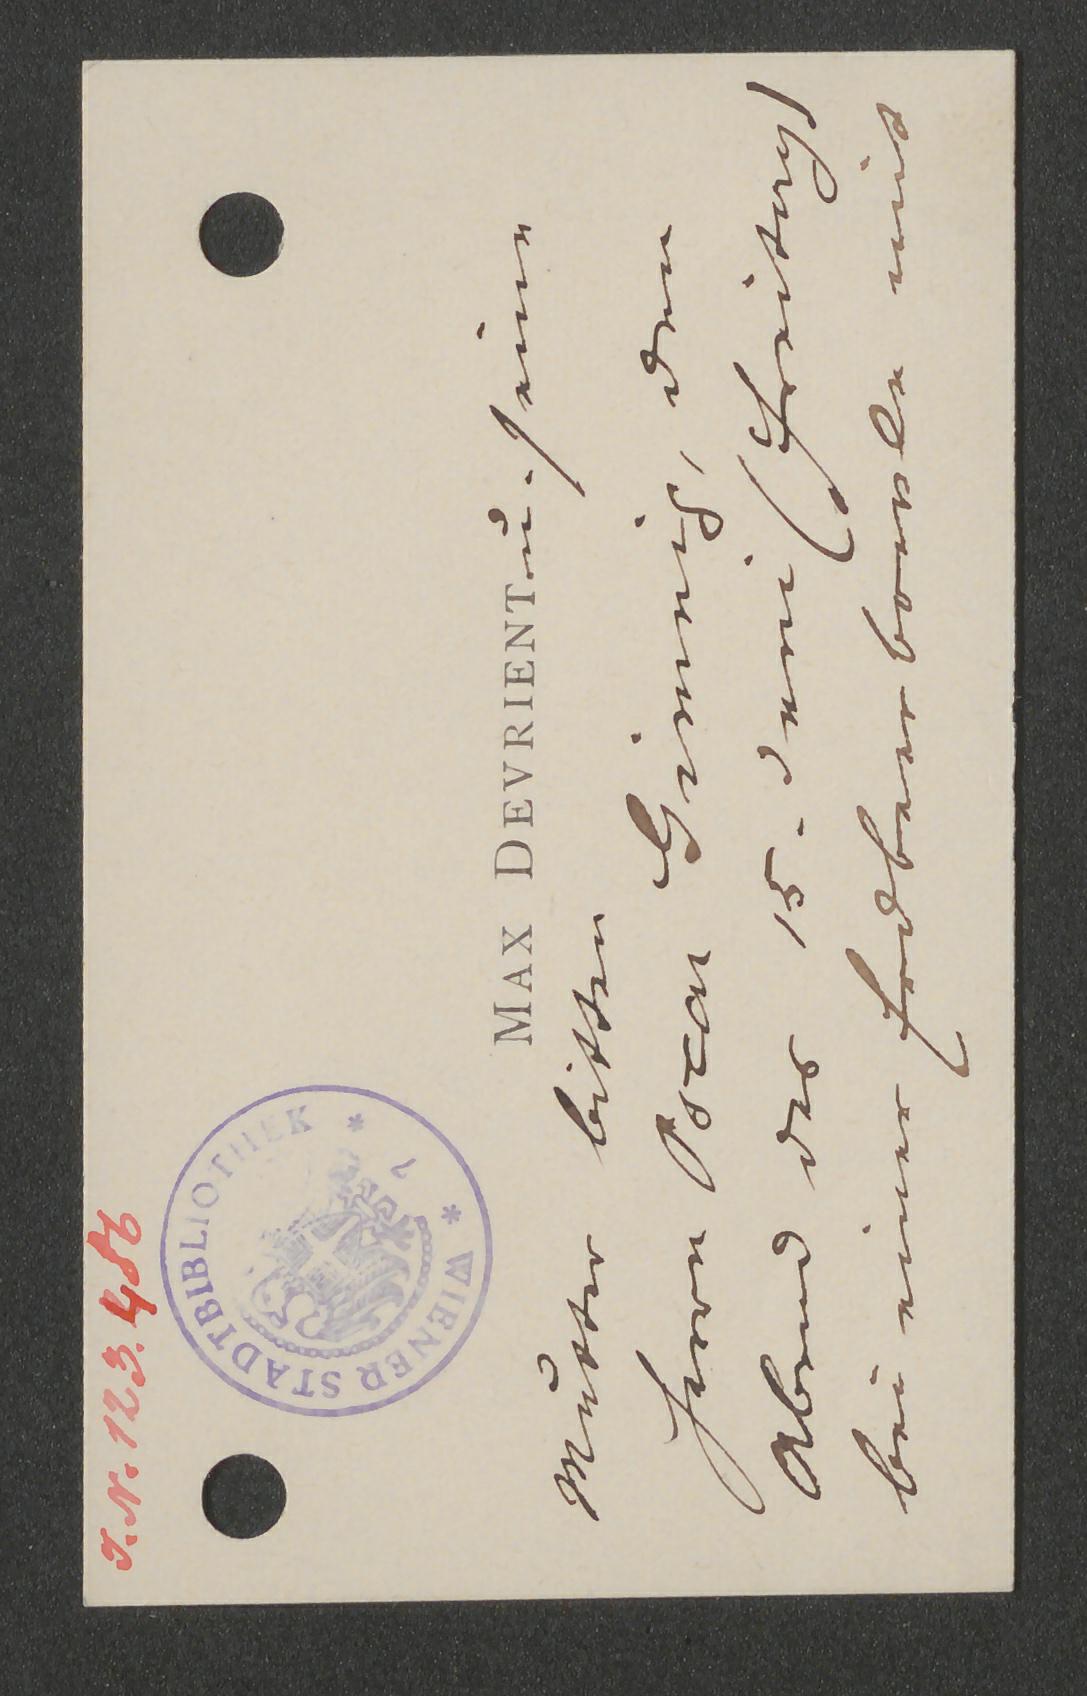 J. N. 123.486
WIENER STADTBIBLIOTHEK
MAX DEVRIENT u. seine
Mutter bitten
Herrn Oscar Grinnig, den
Abend des 15. Juni (Freitag)
bei einer Erdbeerbowle mit